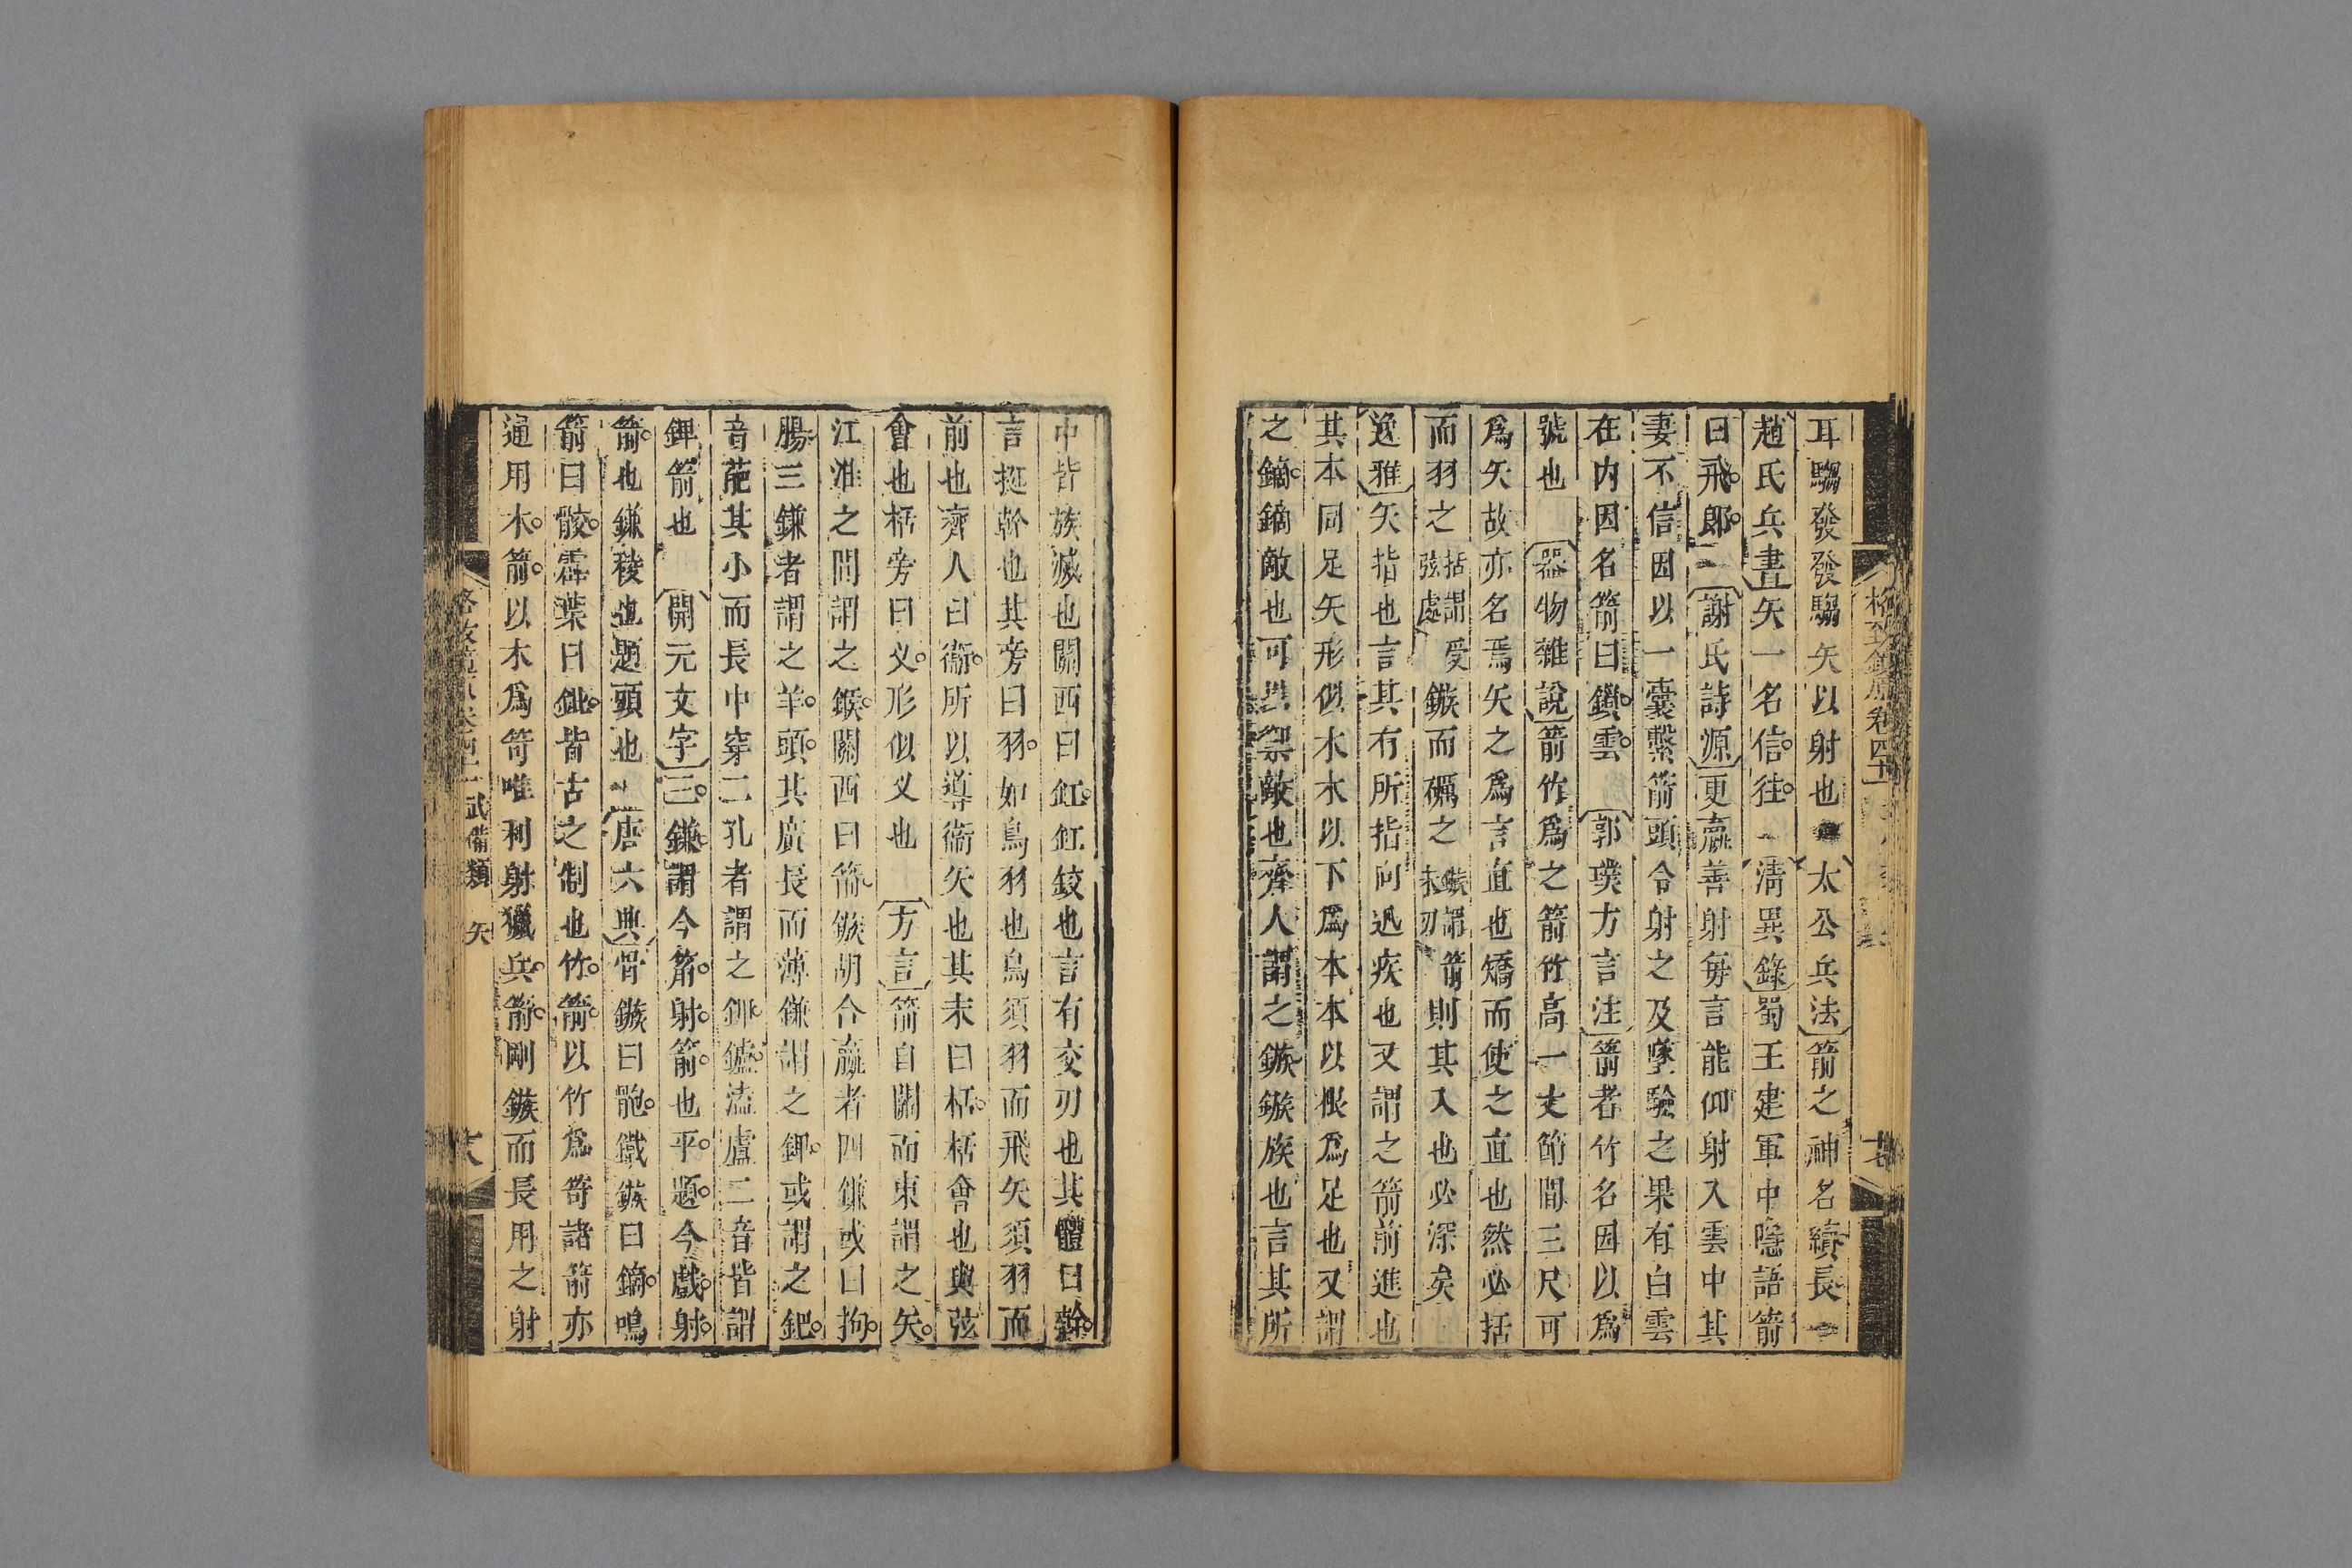 格致鏡原卷四十
耳騶發發騶矢以射也 太公兵法箭之神名續長一
趙氏兵書矢一名信往 清異錄蜀王建軍中隱語箭
曰飛郎 謝氏詩源更羸善射每言能仰射入雲中其
妻不信因以一囊繫箭頭令射之及墜驗之果有白雲
在内因名箭曰鎖雲 郭璞方言注箭者竹名因以爲
號也 器物雜說箭竹爲之箭竹高一丈節間三尺可
爲矢故亦名焉矢之爲言直也矯而使之直也然必括
而羽之括謂受弦處鏃而礪之鏃謂箭末刃則其入也必深矣
逸雅矢指也言其有所指向迅疾也又謂之箭前進也
其本曰足矢形似木木以下爲本本以根爲足也又謂
之鏑鏑敵也可以禦敵也齊人謂之鏃鏃族也言其所
中皆族滅也關西曰釭釭鉸也言有交刃也其體曰榦
言挺幹也其旁曰羽如鳥羽也鳥須羽而飛矢須羽而
前也齊人曰衞所以導衞矢也其末曰栝栝會也與弦
會也栝旁曰义形似义也 方言箭自關而東謂之矢
江淮之間謂之鍭關西曰箭鏃胡合嬴者四鐮或曰拘
腸三鐮者謂之羊頭其廣長而薄鐮謂之錍或謂之鈀
音葩其小而長中穿二孔者謂之鉀鑪溘廬二音皆謂
錍箭也 開元文字三鐮謂今箭射箭也平題今戲射
箭也鐮稜也題頭也 唐六典骨鏃曰骲鐵鏃曰鏑鳴
箭曰骹霹葉曰鈚皆古之制也竹箭以竹爲笴諸箭亦
通用木箭以木爲笴唯利射獵兵箭剛鏃而長用之射
武備類 矢